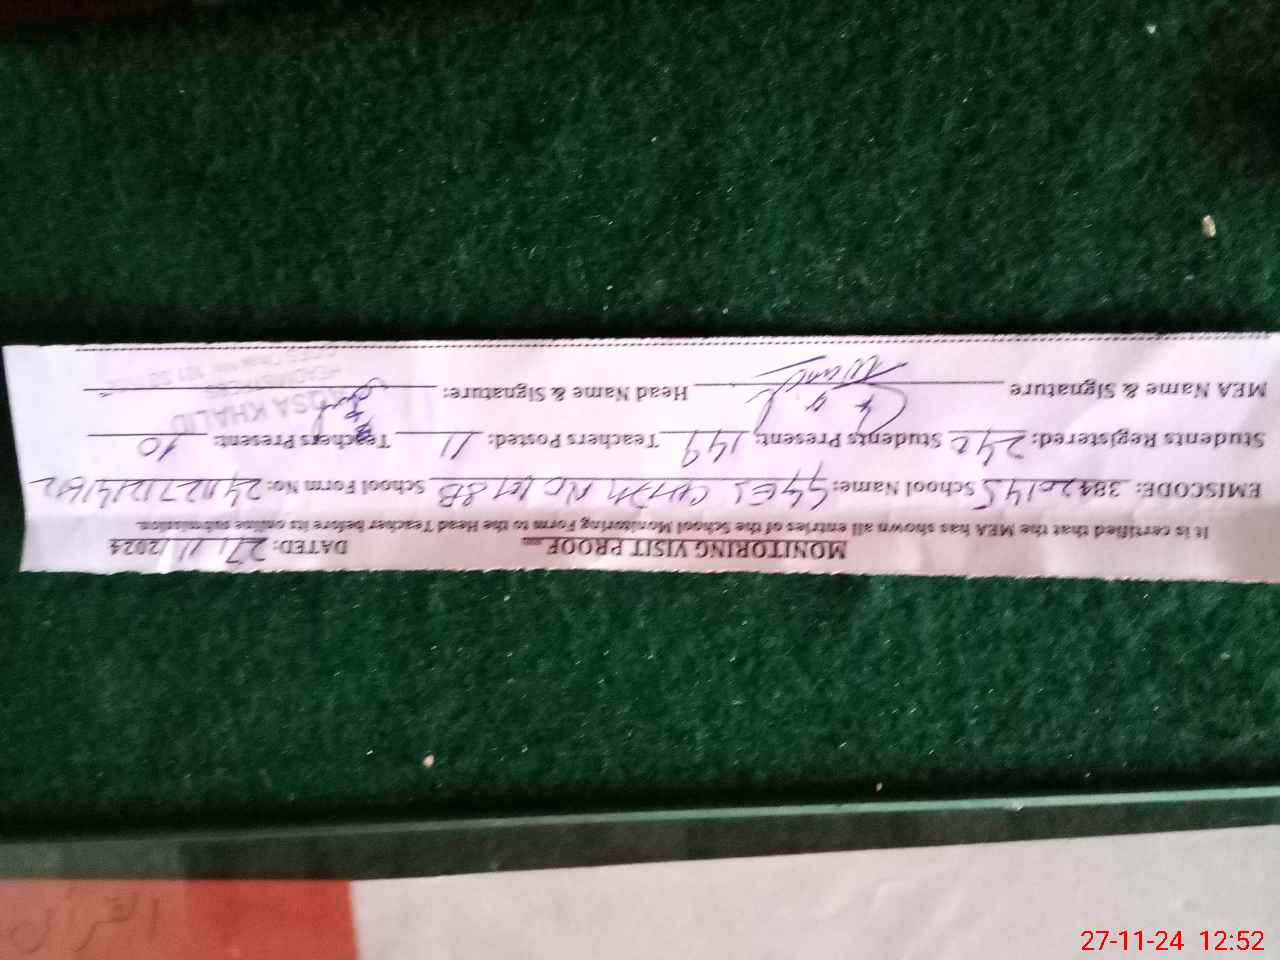 MONITORING VISIT PROOF DATED: 27/11/2024
It is certified that the MEA has shown all entries of the School Monitoring Form to the Head Teacher before its online submission.
EMISCODE: 38420145 School Name: GGES CHAK NO 101 SB School Form No:
Students Registered: 240 Students Present: 149 Teachers Posted: 11 Teachers Present: 10
MEA Name & Signature Head Name & Signature:
KHALID
HEADMISTRESS
27-11-24 12:52